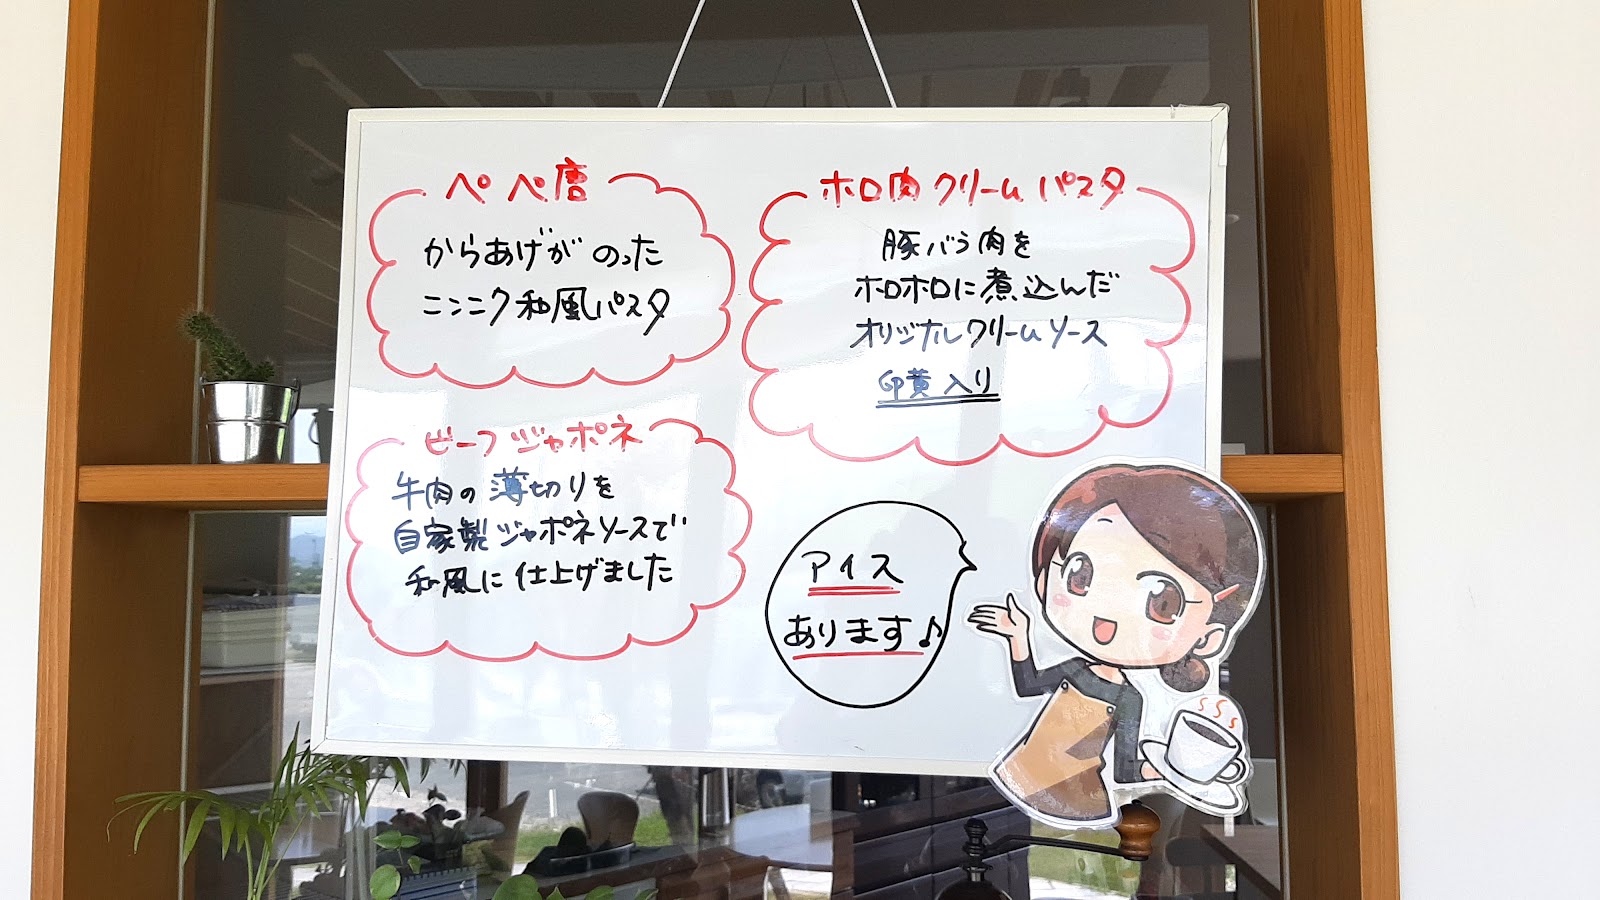 ペペ唐
からあげがのった
ニンニク和風パスタ
ホロ肉クリームパスタ
豚バラ肉を
ホロホロに煮込んだ
オリジナルクリームソース
卵黄入り
ビーフジャポネ
牛肉の薄切りを
自家製ジャポネソースで
和風に仕上げました
アイス
あります♪